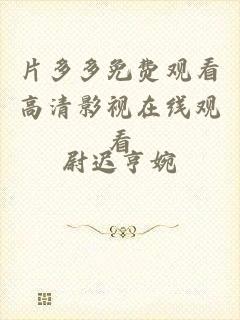 片多多免费观看
高清影视在线观
看
尉迟亨婉